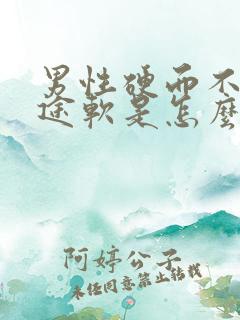 男性硬而不
途軟是怎麼
阿婷公子
未经同意禁止转载